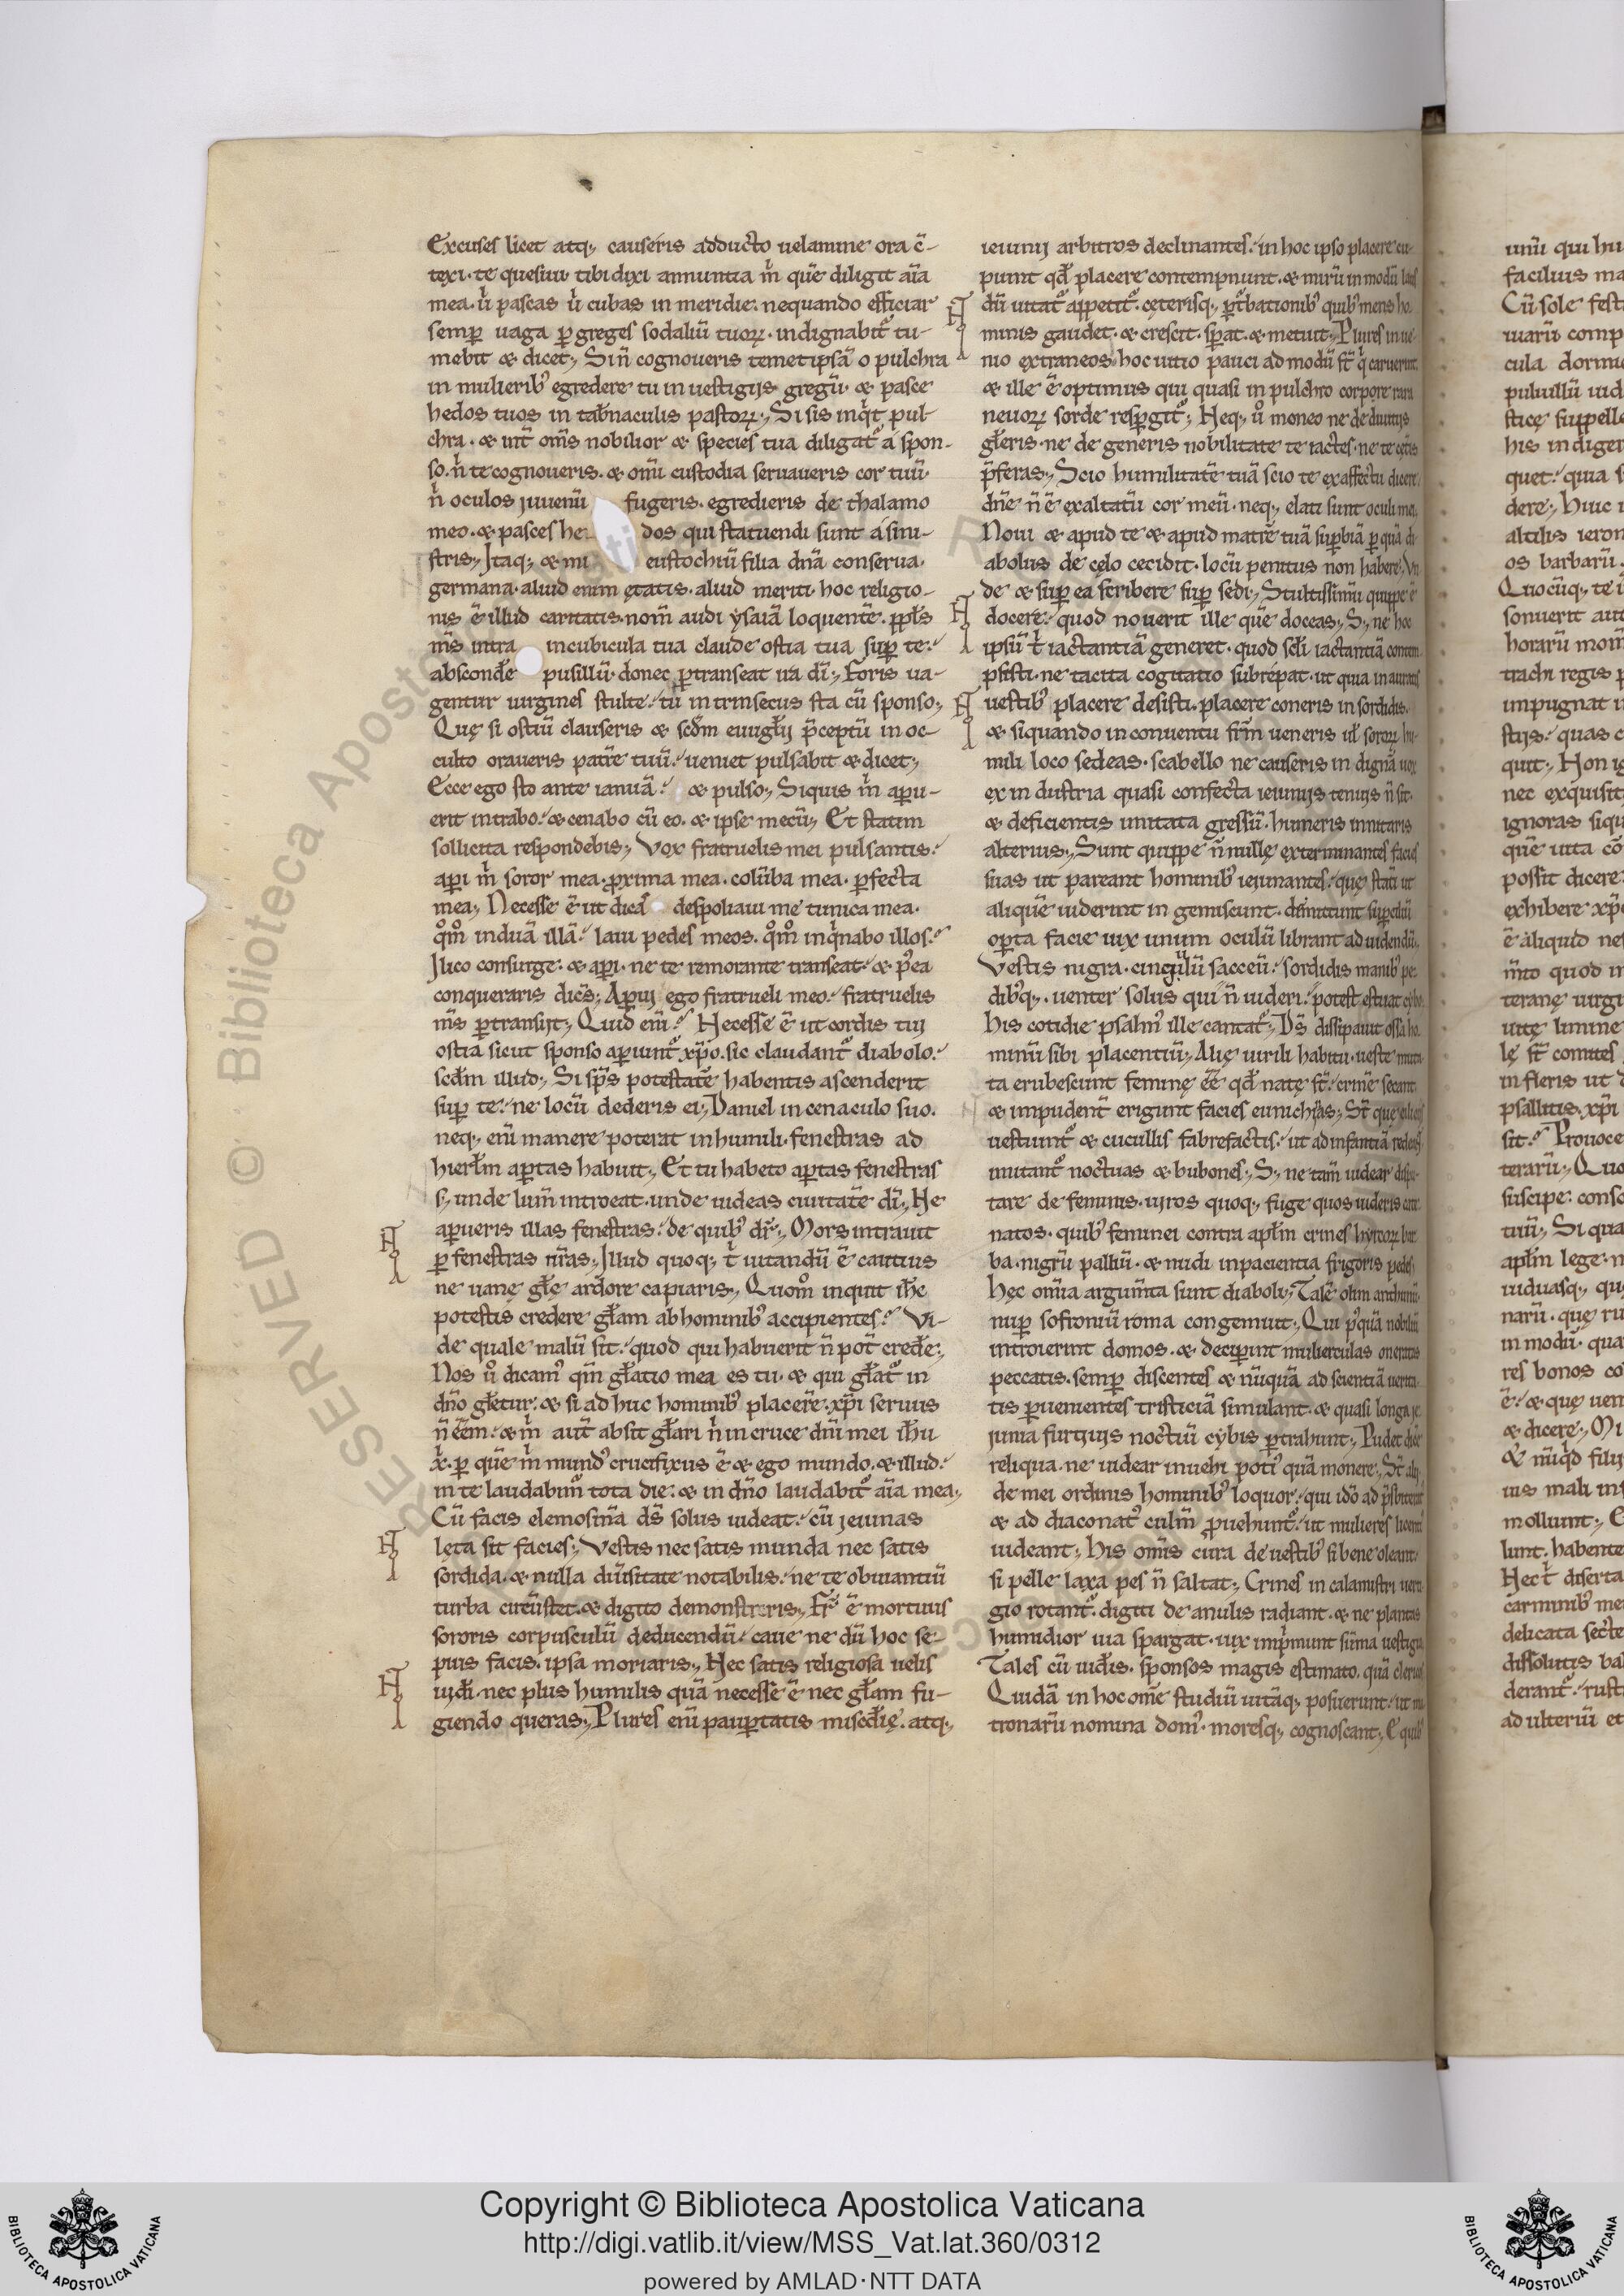 Excuses licet atq; causeris adducto uelamine ora c̄-
texi. te quesiui tibi dixi annuntia m̄ quē diligit aīa
mea. u͛ pascas u͛ cubas in meridie. nequando efficiar
semp̱ uaga p̱ greges sodaliū tuoꝝ. indignabit᷑ tu-
mebit & dicet; Si n̄ cognoueris temetipsā o pulchra
in mulierib; egredere tu in uestigijs gregū. & pasce
hedos tuos in tab̄naculis pastoꝝ; Si sis inqͥt pul-
chra. & int̄ om̄s nobilior & species tua diligat᷑ a spon-
so. n̄ te cognoueris. & omī custodia seruaueris cor tuū.
n̄ oculos juuenū fugeris. egredieris de thalamo
meo. & pasces he dos qui statuendi sunt a sini-
stris; Itaq; & mi eustochiū filia dn̄a conserua.
germana. aliud enim ętatis. aliud meriti. hoc religio-
nis ē illud caritatis. nom̄ audi ysaiā loquentē. ppl̄s
m̄s intra incubicula tua claude ostia tua sup̱ te.
absconde pusillū. donec p̱transeat ira dī; Foris ua-
gentur uirgines stulte. tu intrinsecus sta cū sponso;
Quę si ostiū clauseris & scd̄m euuglij p̄ceptū in oc-
culto oraueris patrē tuū. ueniet pulsabit & dicet;
Ecce ego sto ante ianuā. & pulso; Siquis m̄ apu-
erit intrabo. & cenabo cū eo. & ipse mecū; Et statim
sollicita respondebis; Vox fratruelis mei pulsantis.
ap̱i m̄ soror mea. proxima mea. colūba mea. p̱fecta
mea; Necesse ē ut dicā despoliaui me tunica mea.
qm̊o induā illā. laui pedes meos. qm̊o inqͥnabo illos.
Ilico consurge. & ap̱i. ne te remorante transeat. & p᷑ea
conqueraris dic̄s; Ap̱ui ego fratrueli meo. fratruelis
m̄s p̱transijt; Quid enī. Necesse ē ut cordis tui
ostia sicut sponso ap̱iunt᷑ xp̄o. sic claudant᷑ diabolo.
scd̄m illud; Si sps̄ potestatē habentis ascenderit
sup̱ te. ne locū dederis ei; Daniel in cenaculo suo.
neq; enī manere poterat in humili. fenestras ad
hierl̄m ap̱tas habuit; Et tu habeto ap̱tas fenestras
s; unde lum̄ introeat. unde uideas ciuitatē dī; Ne
ap̱ueris illas fenestras. de quib; dr̄; Mors intrauit
p̱ fenestras nr̄as; Illud quoq; t͛ uitandū ē cautius
ne uanę glę ardore capiaris; Quom̊ inquit ih̄c
potestis credere gl̄am ab hominib; accipientes. Vi-
de quale malū sit. quod qui habuerit n̄ pot̄ credē;
Nos u͛ dicam᷑ qm̄ gl̄atio mea es tu. & qui gl̄at᷑ in
dn̄o gl̄etur. & si adhuc hominib; placerē. xp̄i seruus
n̄ eēm. & m̄ aut̄ absit gl̄ari n͛ in cruce dn̄i mei ih̄u
x̄. p̱ quē m̄ mund᷑ crucifixus ē & ego mundo. & illud.
in te laudabim᷑ tota die. & in dn̄o laudabit᷑ aīa mea;
Cū facis elemosinā ds̄ solus uideat. cū jeiunas
lęta sit facies; Vestis nec satis munda nec satis
sordida. & nulla diūsitate notabilis. ne te obuiantiū
turba circūstet. & digito demonstreris; Fr̄ ē mortuus
sororis corpusculū deducendū. caue ne dū hoc se-
pius facis. ipsa moriaris; Nec satis religiosa uelis
uidēi. nec plus humilis quā necesse ē nec gl̄am fu-
giendo queras; Plures enī paup̱tatis misc̄dię. atq;
ieiunij arbitros declinantes. in hoc ipso placere cu-
piunt qd̄ placere contempnunt. & mirū in modū laus
dū uitat᷑ appetit᷑. cęterisq; p̱t᷑bationib; quib; mens ho-
minis gaudet. & crescit. sp̱at. & metuit; Plures inue-
nio extraneos. hoc uitio pauci ad modū st̄ qͥ caruerint.
& ille ē optimus qui quasi in pulchro corpore rara
neuoꝝ sorde resp̱git᷑; Neq; u͛ moneo ne de diuitijs
gl̄eris. ne de generis nobilitate te iactes. ne te cęt̄is
p̄feras; Scio humilitatē tuā scio te ex affectu dicere.
dn̄e n̄ ē exaltatū cor meū. neq; elati sunt oculi mei.
Noui & apud te & apud matrē tuā sup̱biā p̱ quā di-
abolus de cęlo cecidit. locū penitus non habere; Vn
de & sup̱ ea scribere sup̱ sedi; Stultissimū quippe ē
docere. quod nouerit ille quē doceas; S; ne hoc
ipsū t͛ iactantiā generet. quod scl̄i iactantiā contem
psisti. ne tacita cogitatio subrepat. ut quia in auratis
uestib; placere desisti. placere coneris in sordidis.
& siquando in conuentu frm̄ ueneris ul̄ soroꝝ hu-
mili loco sedeas. scabello ne causeris in dignā uox
ex in dustria quasi confecta ieiunijs tenuis n̄ sit.
& deficientis imitata gressū. humeris innitaris
alterius; Sunt quippe n̄nullę exterminantes facies
suas ut pareant hominib; ieiunantes. que statī ut
aliquē uiderint in gemiscunt. dimittunt sup̱ciliū
op̱ta facie uix unum oculū librant ad uidendū.
Vestis nigra. cingulū sacceū. sordidis manib; pe-
dib;q;. uenter solus qui n̄ uideri. potest estuat cybo
his cotidie psalm᷑ ille cantat᷑; Ds̄ dissipauit ossa ho-
minū sibi placentiū; Alię uirili habitu. ueste muta-
ta erubescunt feminę eē qd̄ natę st̄. crinē secant
& impudent̄ erigunt facies eunichas; St̄ que ciliciis
uestiunt᷑ & cucullis fabrefactis. ut ad infantiā redeant
imitant᷑ noctuas & bubones; S; ne tam̄ uidear dispu-
tare de feminis. uiros quoq; fuge quos uideris cate-
natos. quib; feminei contra apl̄m crines hyrcoꝝ bar-
ba. nigrū palliū. & nudi inpacientia frigoris pedes
hęc om̄ia argum̄ta sunt diaboli; Talē olim anthimū
nup̱ sofroniū roma congemuit; Qui p᷑quā nobiliū
introierint domos. & decip̱int mulierculas oneratas
peccatis. semp̱ discentes & nūquā ad scientiā uerita-
tis p̱uenientes tristiciā simulant. & quasi longa je-
junia furtiuijs noctiū cybis p̱trahunt; Pudet dice
reliqua. ne uidear inuehi poti᷑ quā monere; St̄ alij
de mei ordinis hominib; loquor. qui idō ad p̄sbiteratū
& ad diaconat᷑ culm̄ ꝓuehunt᷑. ut mulieres licenti᷑
uideant; His om̄is cura de uestib; si bene oleant.
si pelle laxa pes n̄ saltat; Crines in calamistri uesti-
gio rotant᷑. digiti de anulis radiant. & ne plantas
humidior uia spargat. uix imp͛munt sūma uestigia
Tales cū uid̄is. sponsos magis estimato. quā clericos
Quidā in hoc om̄e studiū uitāq; posuerunt. ut ma
tronarū nomina dom᷑. moresq; cognoscant; E quib;
Copyright © Biblioteca Apostolica Vaticana
http://digi.vatlib.it/view/MSS_Vat.lat.360/0312
powered by AMLAD·NTT DATA